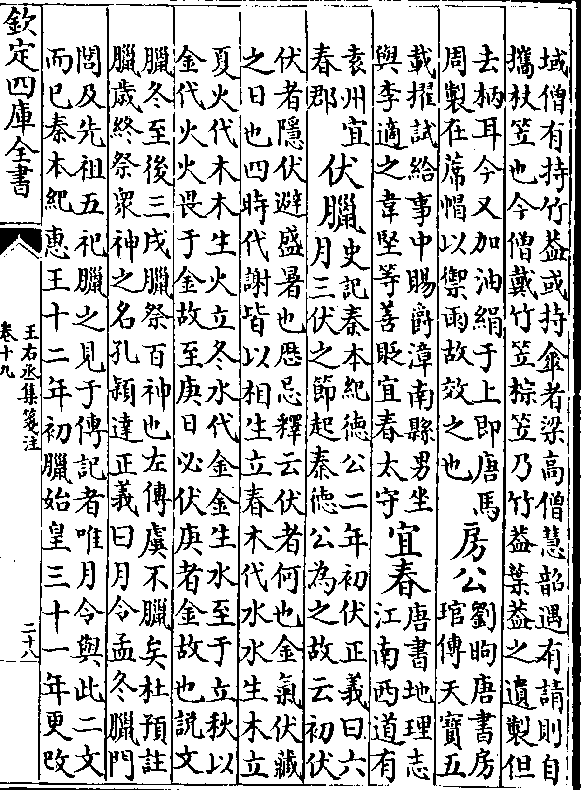 域僧有持竹葢或持傘者梁高僧慧韶遇有請則自
攜杖笠也今僧戴竹笠椶笠乃竹葢葉葢之遺製但
去柄耳今又加油絹于上即唐馬
周製在蓆帽以禦雨故效之也
房公
劉昫唐書房
琯傳天寶五
載擢試給事中賜爵漳南縣男坐
與李適之韋堅等善貶宜春太守
宜春
唐書地理志
江南西道有
袁州宜
春郡
伏臘
史記秦本紀德公二年初伏正義曰六
月三伏之節起秦德公為之故云初伏
伏者隱伏避盛暑也厯忌釋云伏者何也金氣伏藏
之日也四時代謝皆以相生立春木代水水生木立
夏火代木木生火立冬水代金金生水至于立秋以
金代火火畏于金故至庚日必伏庚者金故也説文
臘冬至後三戌臘祭百神也左傳虞不臘矣杜預註
臘歲終祭衆神之名孔頴達正義曰月令孟冬臘門
閭及先祖五祀臘之見于傳記者唯月令與此二文
而已秦本紀惠王十二年初臘始皇三十一年更改
欽定四庫全書
王右丞集箋注
卷十九
二十八